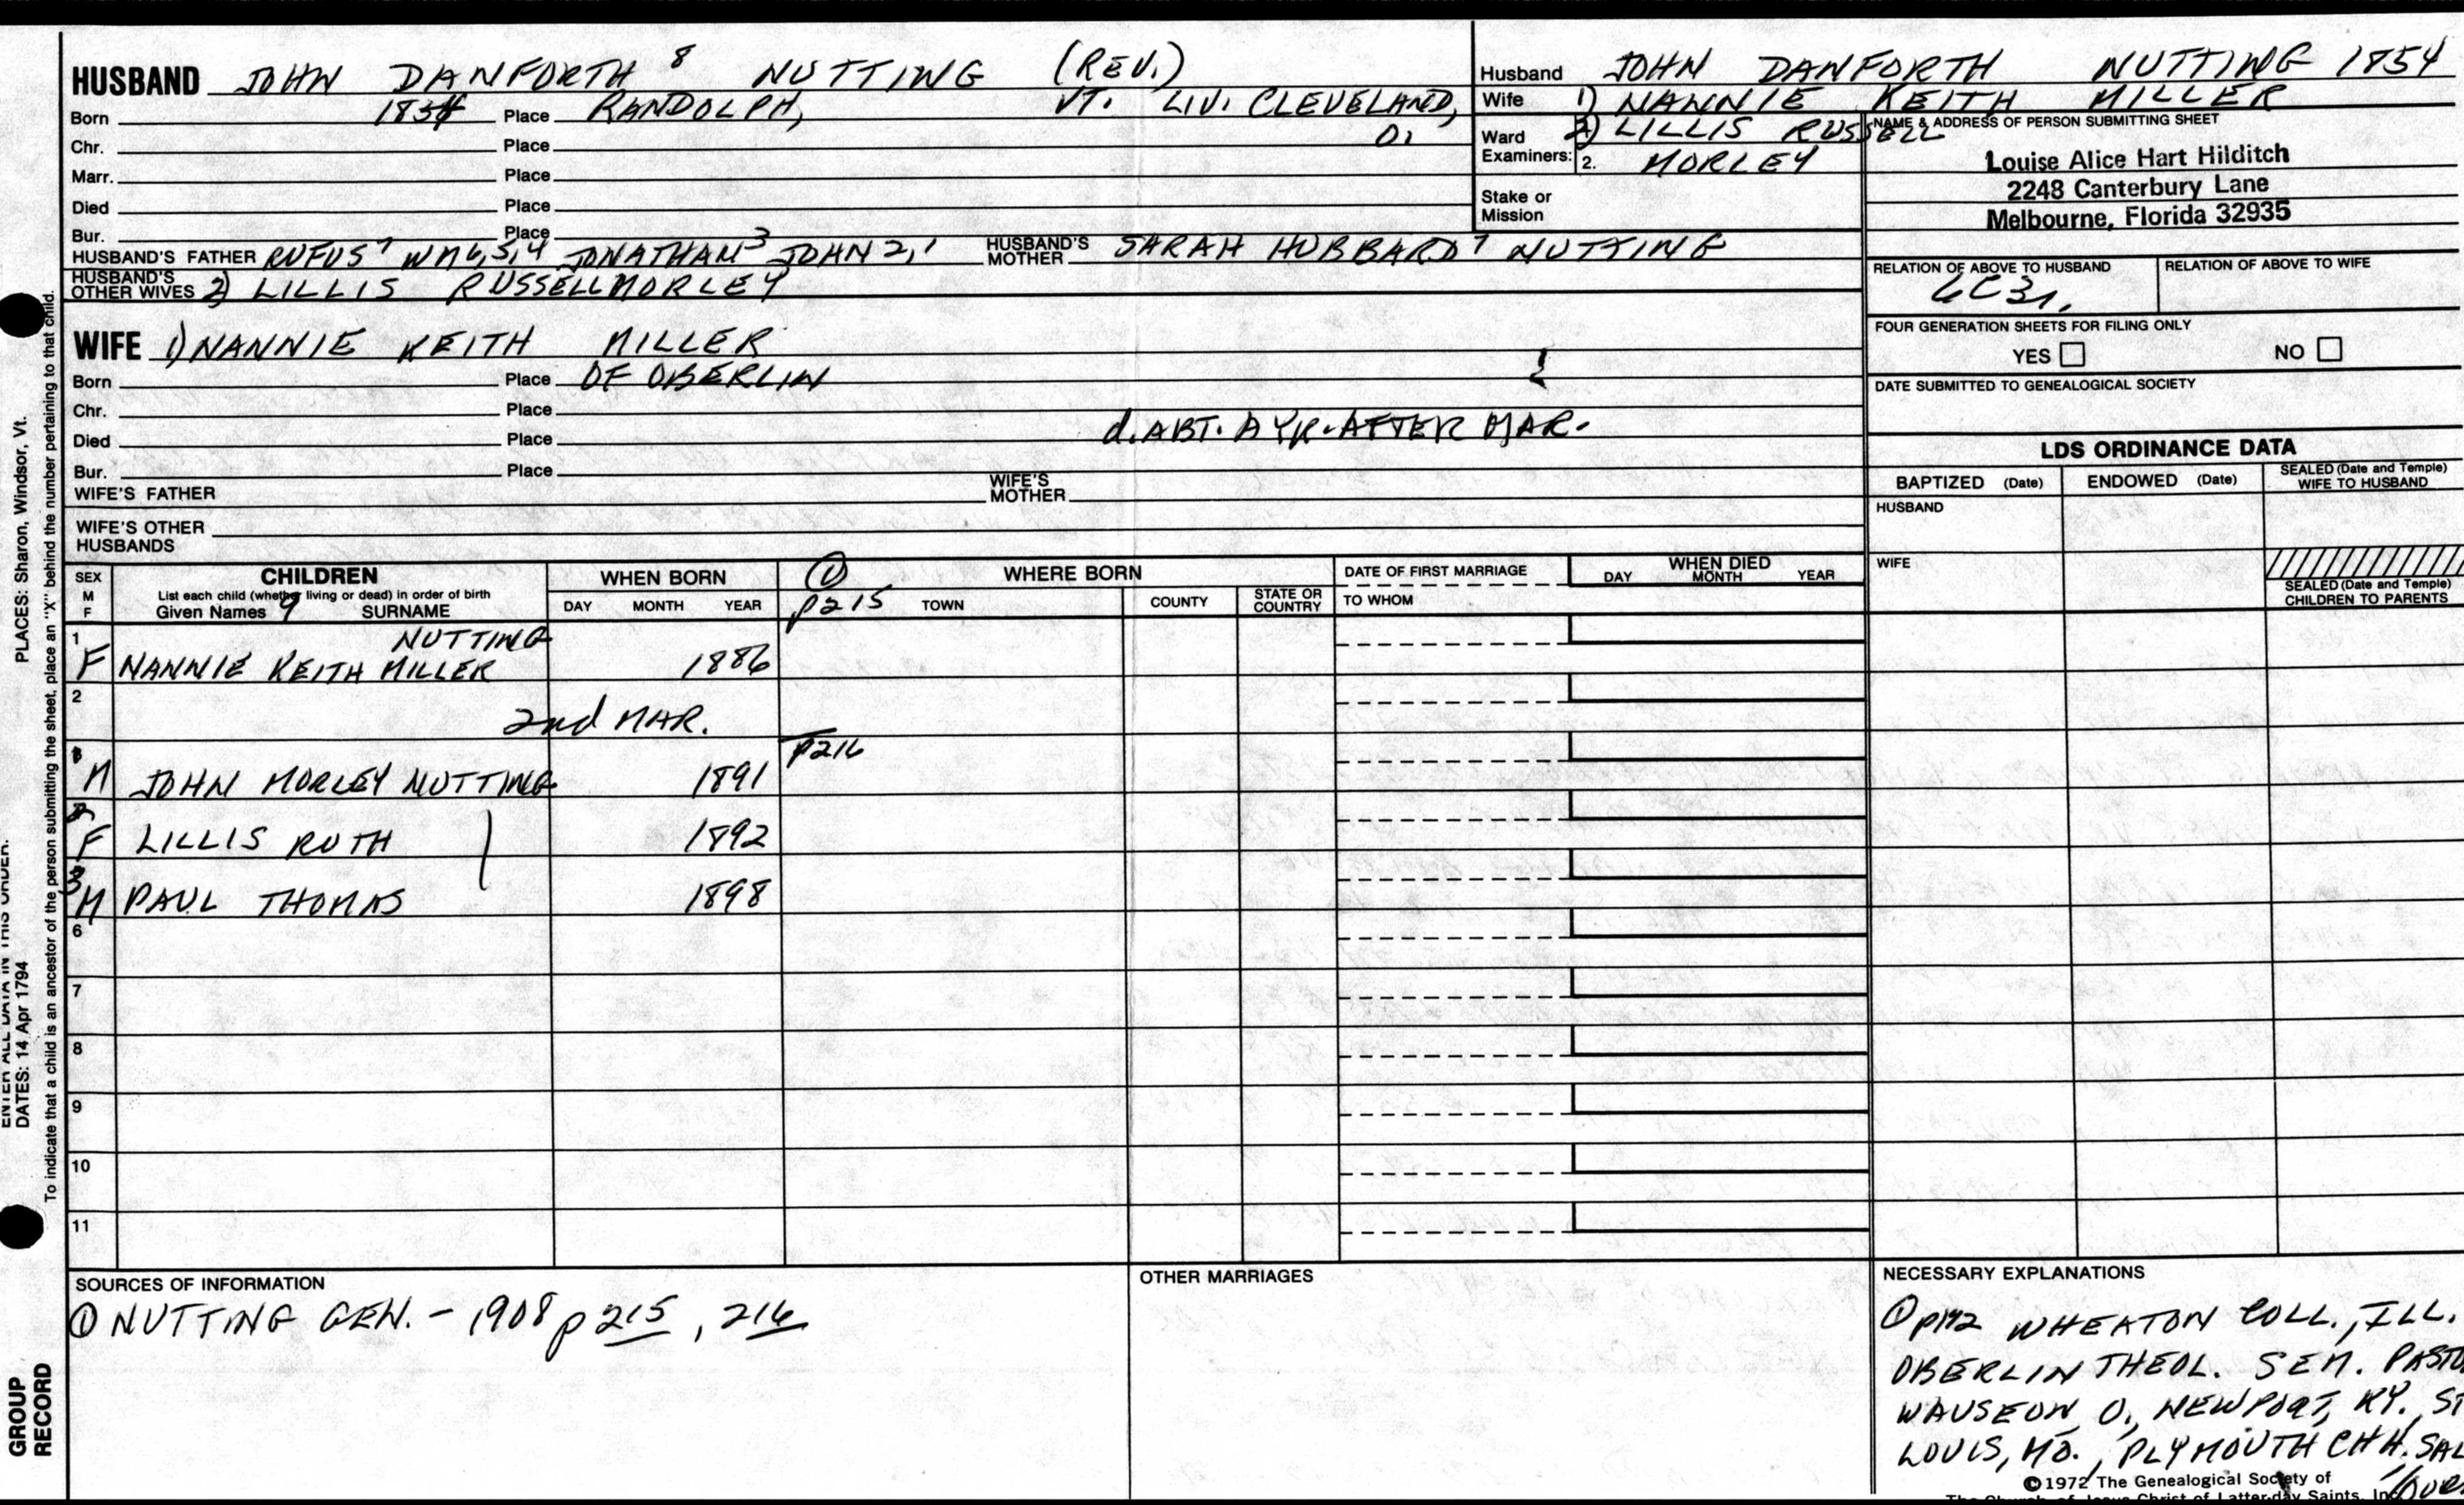 HUSBAND JOHN DANFORTH 8 NUTTING (REV.)
Born 1854 Place RANDOLPH, VT. LIV. CLEVELAND,
O.
Chr. Place
Marr. Place
Died Place
Bur. Place
HUSBAND'S FATHER RUFUS 7 WM 6,5,4 JONATHAN 3 JOHN 2,1 HUSBAND'S MOTHER SARAH HUBBARD 7 NUTTING
HUSBAND'S OTHER WIVES 2) LILLIS RUSSELL MORLEY
WIFE 1) NANNIE KEITH MILLER
Born Place OF OBERLIN
Chr. Place
d. ABT. A YR. AFTER MAR.
Died Place
Bur. Place
WIFE'S FATHER WIFE'S MOTHER
WIFE'S OTHER HUSBANDS
Husband JOHN DANFORTH NUTTING 1854
Wife 1) NANNIE KEITH MILLER
Ward 2) LILLIS RUSSELL
Examiners: 2. MORLEY
Stake or Mission
NAME & ADDRESS OF PERSON SUBMITTING SHEET
Louise Alice Hart Hilditch
2248 Canterbury Lane
Melbourne, Florida 32935
RELATION OF ABOVE TO HUSBAND RELATION OF ABOVE TO WIFE
6C3r.
FOUR GENERATION SHEETS FOR FILING ONLY
YES NO
DATE SUBMITTED TO GENEALOGICAL SOCIETY
LDS ORDINANCE DATA
BAPTIZED (Date) ENDOWED (Date) SEALED (Date and Temple) WIFE TO HUSBAND
HUSBAND
WIFE
SEALED (Date and Temple) CHILDREN TO PARENTS
SEX M F
CHILDREN
List each child (whether living or dead) in order of birth
Given Names SURNAME
WHEN BORN
DAY MONTH YEAR
① p215
WHERE BORN
TOWN COUNTY STATE OR COUNTRY
DATE OF FIRST MARRIAGE
TO WHOM
WHEN DIED
DAY MONTH YEAR
1 NUTTING
F NANNIE KEITH MILLER 1886
2
2nd MAR.
p216
1 M JOHN MORLEY NUTTING 1891
2 F LILLIS RUTH 1892
3 M PAUL THOMAS 1898
6
7
8
9
10
11
SOURCES OF INFORMATION
① NUTTING GEN. - 1908 p 215, 216
OTHER MARRIAGES
NECESSARY EXPLANATIONS
① p192 WHEATON COLL., ILL.
OBERLIN THEOL. SEM.
WAUSEON O., NEWPORT, KY.,
LOUIS, MO., PLYMOUTH CHH.
©1972 The Genealogical Society of
The Church of Jesus Christ of Latter-day Saints, Inc.
PLACES: Sharon, Windsor, Vt.
ENTER ALL DATA IN THIS ORDER:
DATES: 14 Apr 1794
To indicate that a child is an ancestor of the person submitting the sheet, place an "X" behind the number pertaining to that child.
GROUP
RECORD